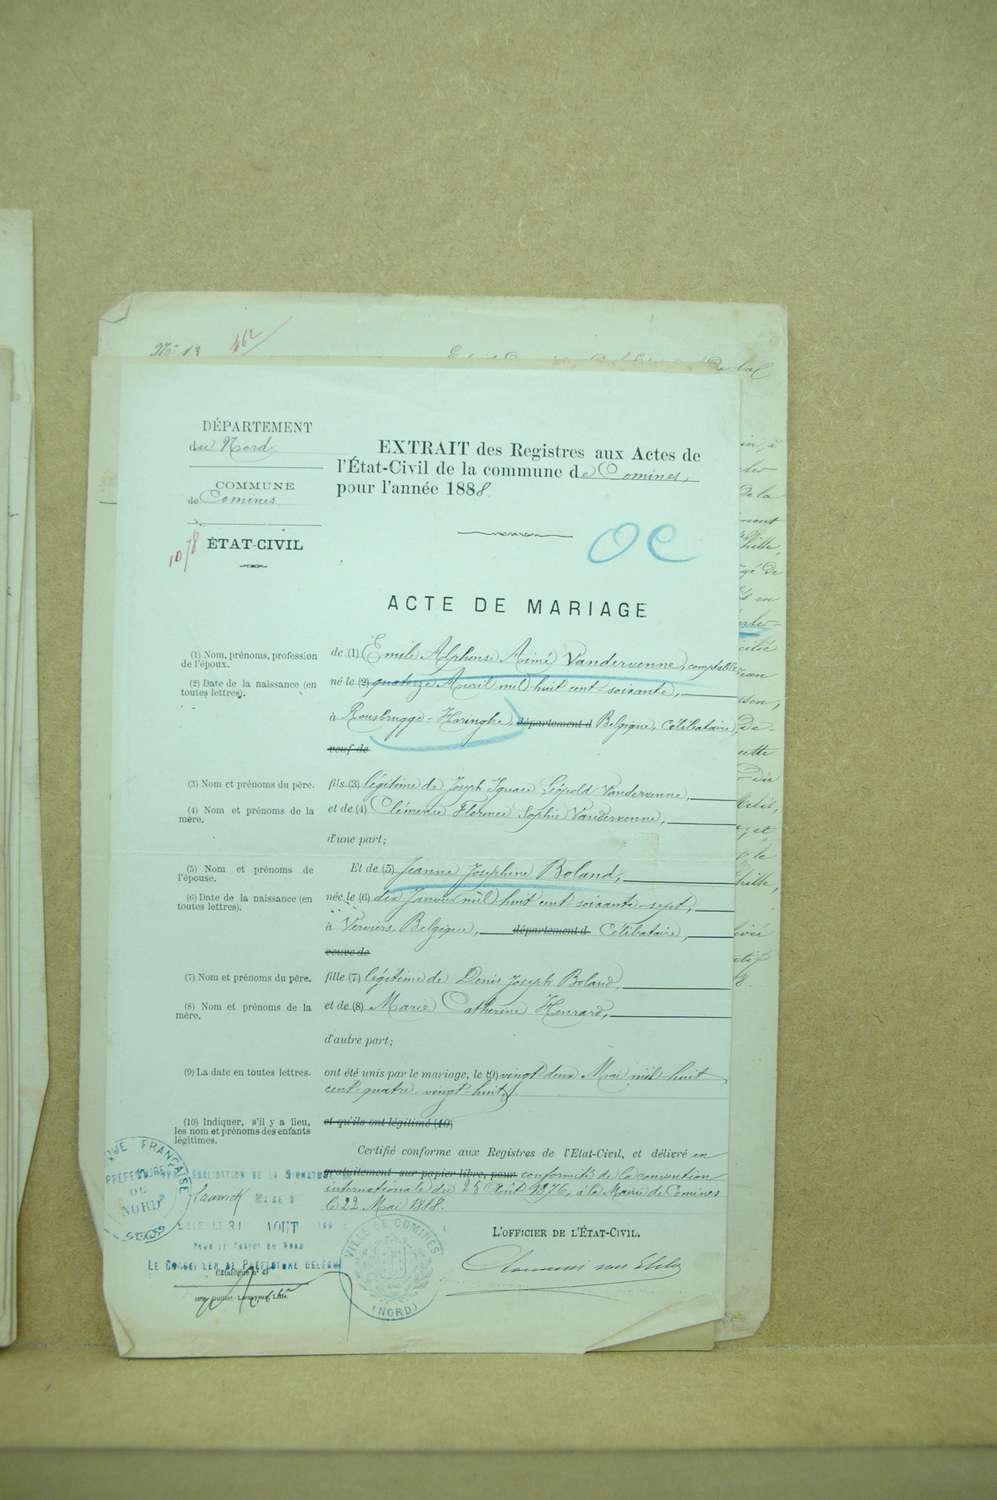 Nº 13
462
DÉPARTEMENT
du Nord
COMMUNE
de Comines
ÉTAT-CIVIL
1078
EXTRAIT des Registres aux Actes de
l'État-Civil de la commune de Comines,
pour l'année 1888.
OC
ACTE DE MARIAGE
(1) Nom, prénoms, profession
de l'époux.
de (1) Emile Alphonse Aimé Vandervenne, comptable
(2) Date de la naissance (en
toutes lettres).
né le (2) quatorze Avril mil huit cent soixante,
à Rousbrugge-Haringhe, département d Belgique, Célibataire,
veuf de
(3) Nom et prénoms du père.
fils (3) légitime de Joseph Ignace Léopold Vandervenne,
(4) Nom et prénoms de la
mère.
et de (4) Clémence Florence Sophie Vandervenne,
d'une part;
(5) Nom et prénoms de
l'épouse.
Et de (5) Jeanne Joséphine Boland,
(6) Date de la naissance (en
toutes lettres).
née le (6) dix Janvier mil huit cent soixante-sept,
à Verviers, Belgique, département d Célibataire,
veuve de
(7) Nom et prénoms du père.
fille (7) légitime de Denis Joseph Boland,
(8) Nom et prénoms de la
mère.
et de (8) Marie Catherine Henrard,
d'autre part;
(9) La date en toutes lettres.
ont été unis par le mariage, le (9) vingt deux Mai mil huit
cent quatre vingt-huit
(10) Indiquer, s'il y a lieu,
les nom et prénoms des enfants
légitimes.
et qu'ils ont légitimé (10)
Certifié conforme aux Registres de l'Etat-Civil, et délivré en
gratuitement sur papier libre, pour conformité de la convention
internationale du 25 Août 1876, à la Mairie de Comines
le 22 Mai 1888.
L'OFFICIER DE L'ÉTAT-CIVIL.
FRANÇAISE
PRÉFECTURE
DU
NORD
LISATION DE LA SIGNATURE
31 AOUT
LE CONSEILLER DE PRÉFECTURE DÉLÉGUÉ
VILLE DE COMINES
(NORD)